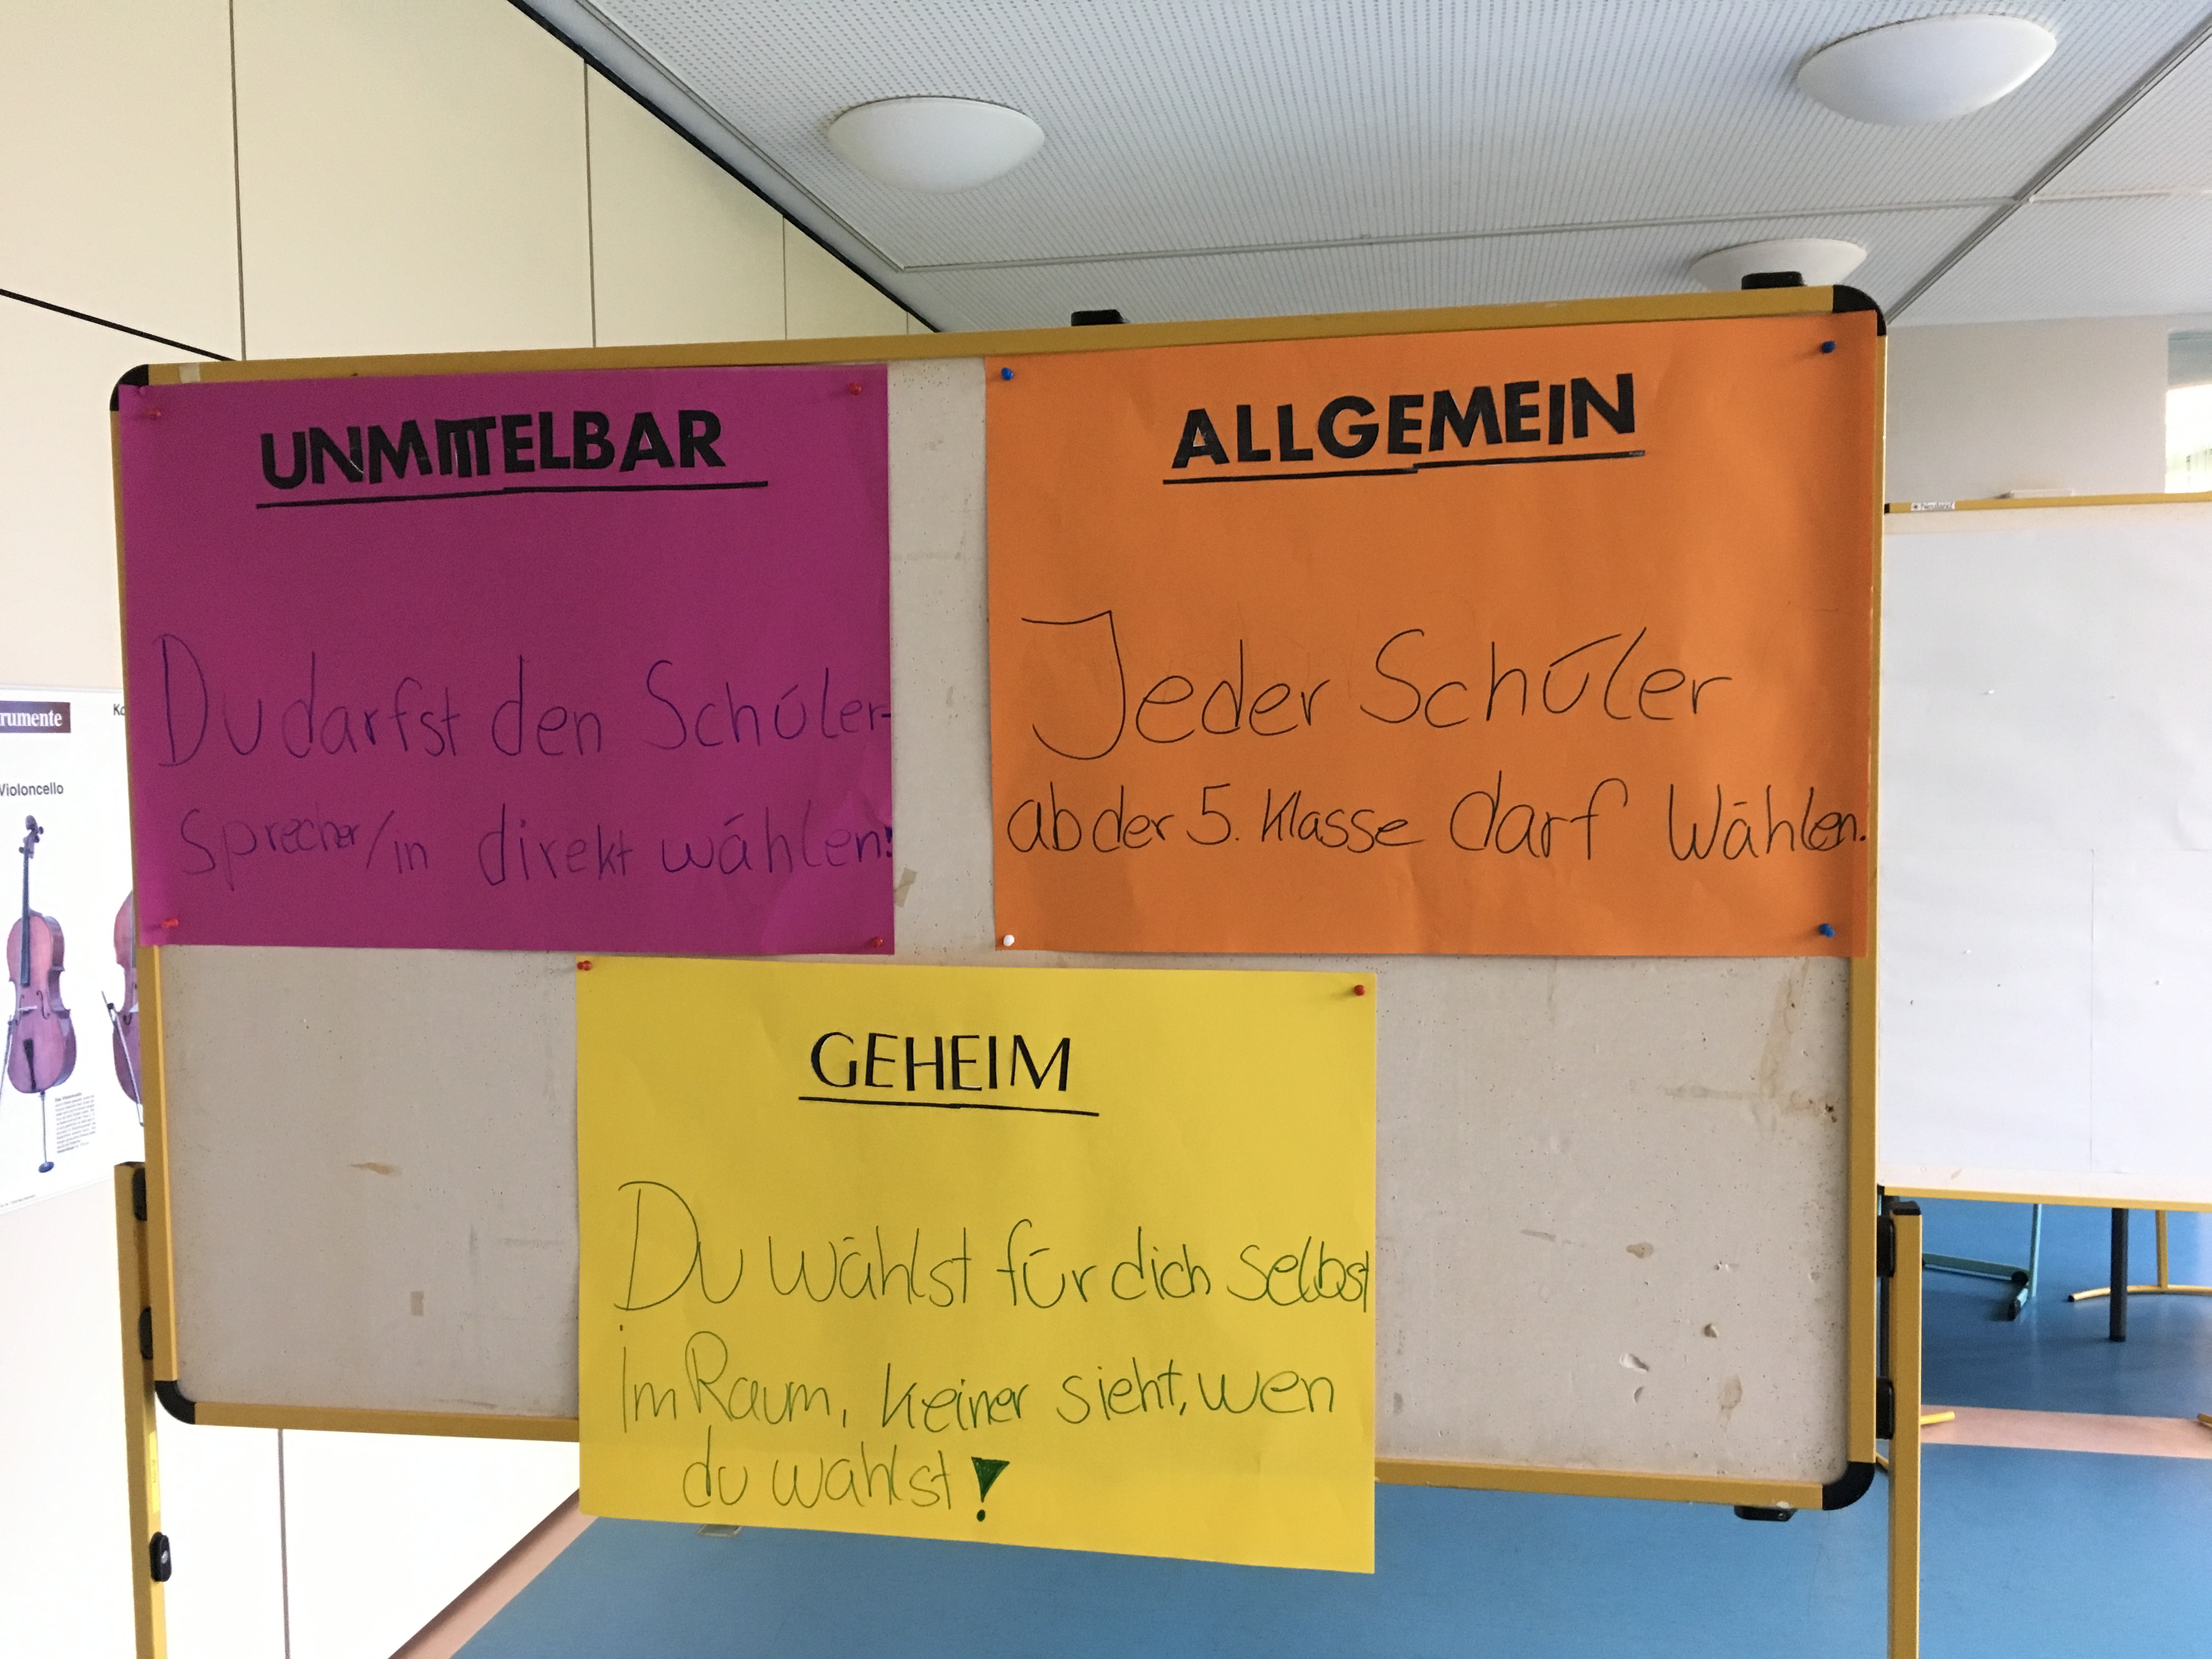 UNMITTELBAR
Du darfst den Schüler-
sprecher/in direkt wählen!
ALLGEMEIN
Jeder Schüler
ab der 5. Klasse darf Wählen.
GEHEIM
Du wählst für dich selbst
im Raum, keiner sieht, wen
du wählst!
rumente
Violoncello